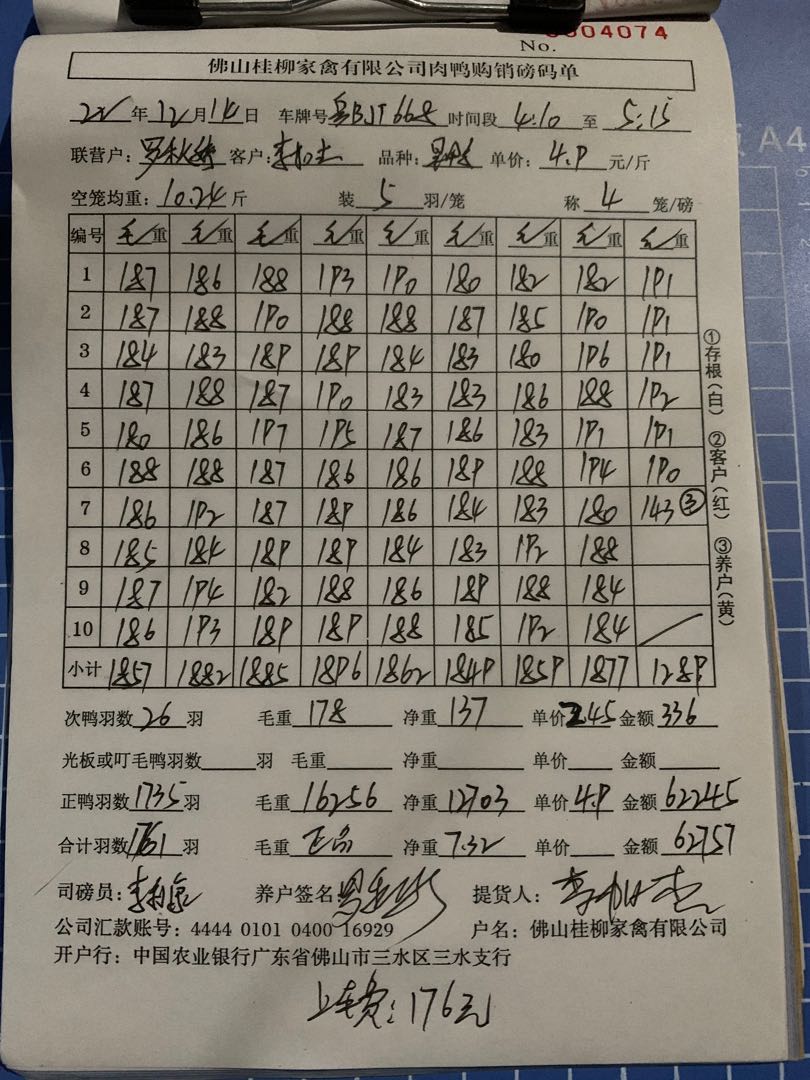 No. 0004074
佛山桂柳家禽有限公司肉鸭购销磅码单
年12月14日 车牌号粤BJT668 时间段 4:10 至 5:15
联营户: 罗秋 客户: 李 品种: 单价: 4.9 元/斤
空笼均重: 10.24 斤 装 5 羽/笼 称 4 笼/磅
编号 毛/重 毛/重 毛/重 毛/重 毛/重 毛/重 毛/重 毛/重 毛/重
1 187 186 188 193 190 180 182 182 191
2 187 188 190 188 188 187 185 190 191
3 184 183 189 189 184 183 180 196 191
4 187 188 187 190 183 183 186 188 192
5 180 186 197 195 187 186 183 191 191
6 188 188 187 186 186 189 188 194 190
7 186 192 187 189 186 184 183 180 143③
8 185 184 189 189 184 183 192 188
9 187 194 182 188 186 189 188 184
10 186 193 189 189 188 185 192 184
小计 1857 1882 1885 1896 1862 1849 1859 1877 1289
次鸭羽数 26 羽 毛重 178 净重 137 单价 2.45 金额 336
光板或叮毛鸭羽数 羽 毛重 净重 单价 金额
正鸭羽数 1735 羽 毛重 16256 净重 12703 单价 4.9 金额 62245
合计羽数 1761 羽 毛重 净重 7.32 单价 金额 62757
司磅员: 李 养户签名 提货人: 李
公司汇款账号: 4444 0101 0400 16929 户名: 佛山桂柳家禽有限公司
开户行: 中国农业银行广东省佛山市三水区三水支行
上车费: 176元
①存根(白) ②客户(红) ③养户(黄)
A4